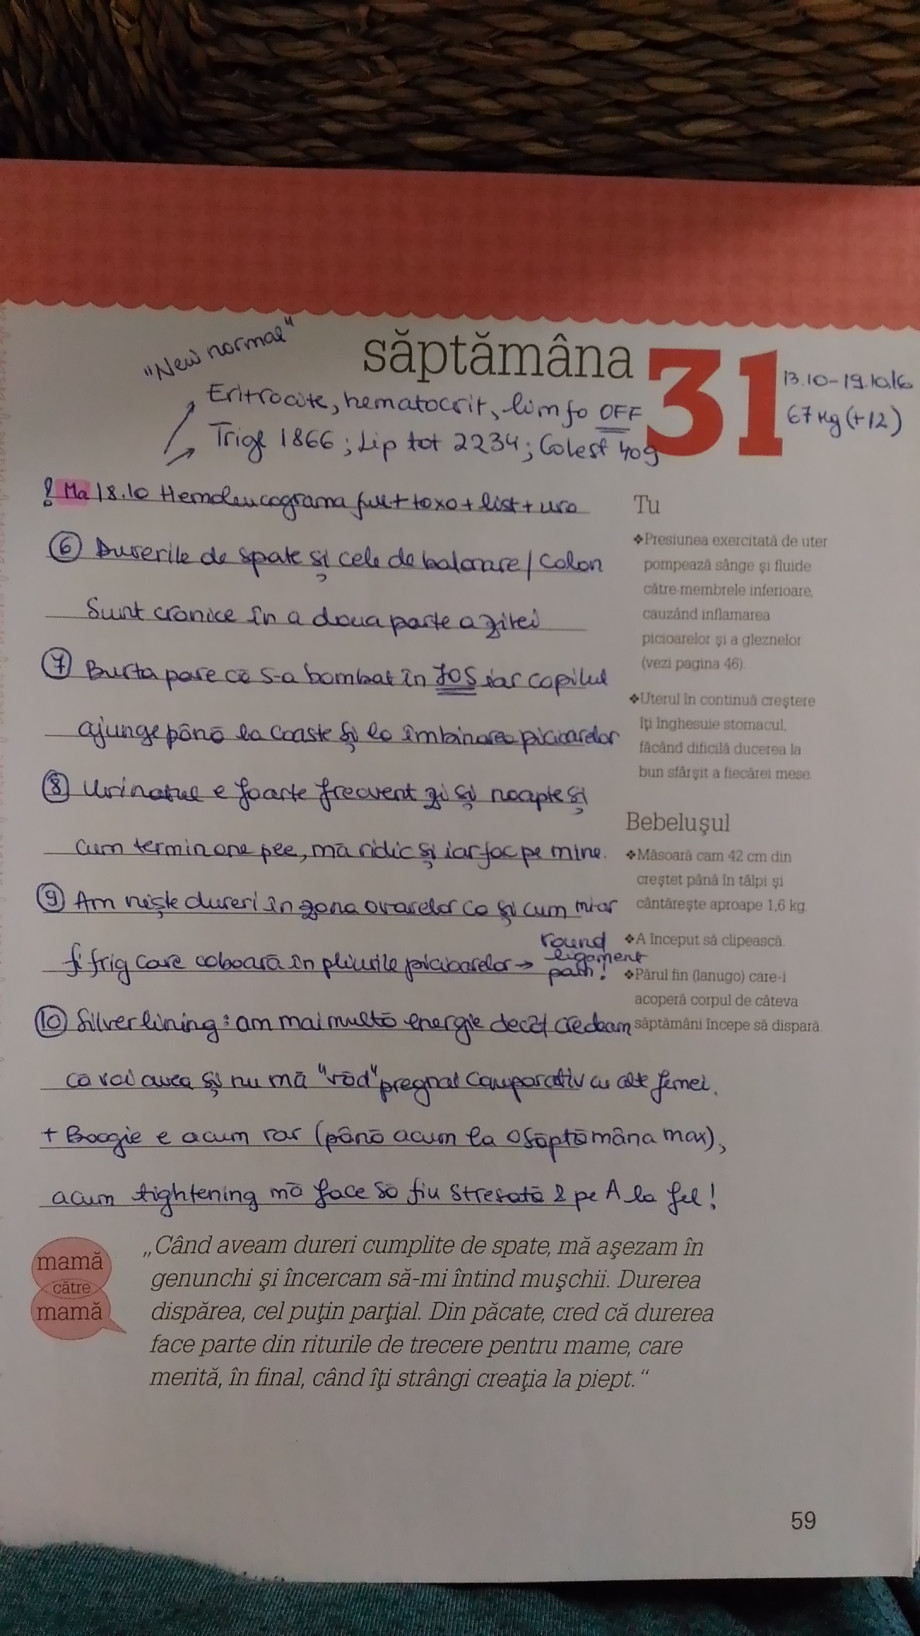 "New normal"
săptămâna 31
13.10-19.10.16
67 kg (+12)
Eritrocite, hematocrit, limfo OFF
Trigl 1866; Lip tot 2234; Colest 409
! Ma 18.10 Hemoleucograma full + toxo + list + uro
⑥ Durerile de spate și cele de balonare / colon
sunt cronice în a doua parte a zilei
⑦ Burta pare că s-a bombat în JOS iar copilul
ajunge până la coaste și la îmbinarea picioarelor
⑧ Urinatul e foarte frecvent zi și noapte și
cum termin one pee, mă ridic și iar fac pe mine.
⑨ Am niște dureri în zona ovarelor ca și cum mi-ar
fi frig care coboară în pliurile picioarelor → round ligament pain!
⑩ Silver lining: am mai multă energie decât credeam
că voi avea și nu mă "văd" pregnat comparativ cu alte femei.
+ Boogie e acum rar (până acum la o săptămâna max),
acum tightening mă face să fiu stresată & pe A la fel!
Tu
❖Presiunea exercitată de uter
pompează sânge și fluide
către membrele inferioare,
cauzând inflamarea
picioarelor și a gleznelor
(vezi pagina 46).
❖Uterul în continuă creștere
îți înghesuie stomacul,
făcând dificilă ducerea la
bun sfârșit a fiecărei mese.
Bebelușul
❖Măsoară cam 42 cm din
creștet până în tălpi și
cântărește aproape 1,6 kg.
❖A început să clipească.
❖Părul fin (lanugo) care-i
acoperă corpul de câteva
săptămâni începe să dispară.
mamă
către
mamă
„Când aveam dureri cumplite de spate, mă așezam în
genunchi și încercam să-mi întind mușchii. Durerea
dispărea, cel puțin parțial. Din păcate, cred că durerea
face parte din riturile de trecere pentru mame, care
merită, în final, când îți strângi creația la piept.“
59